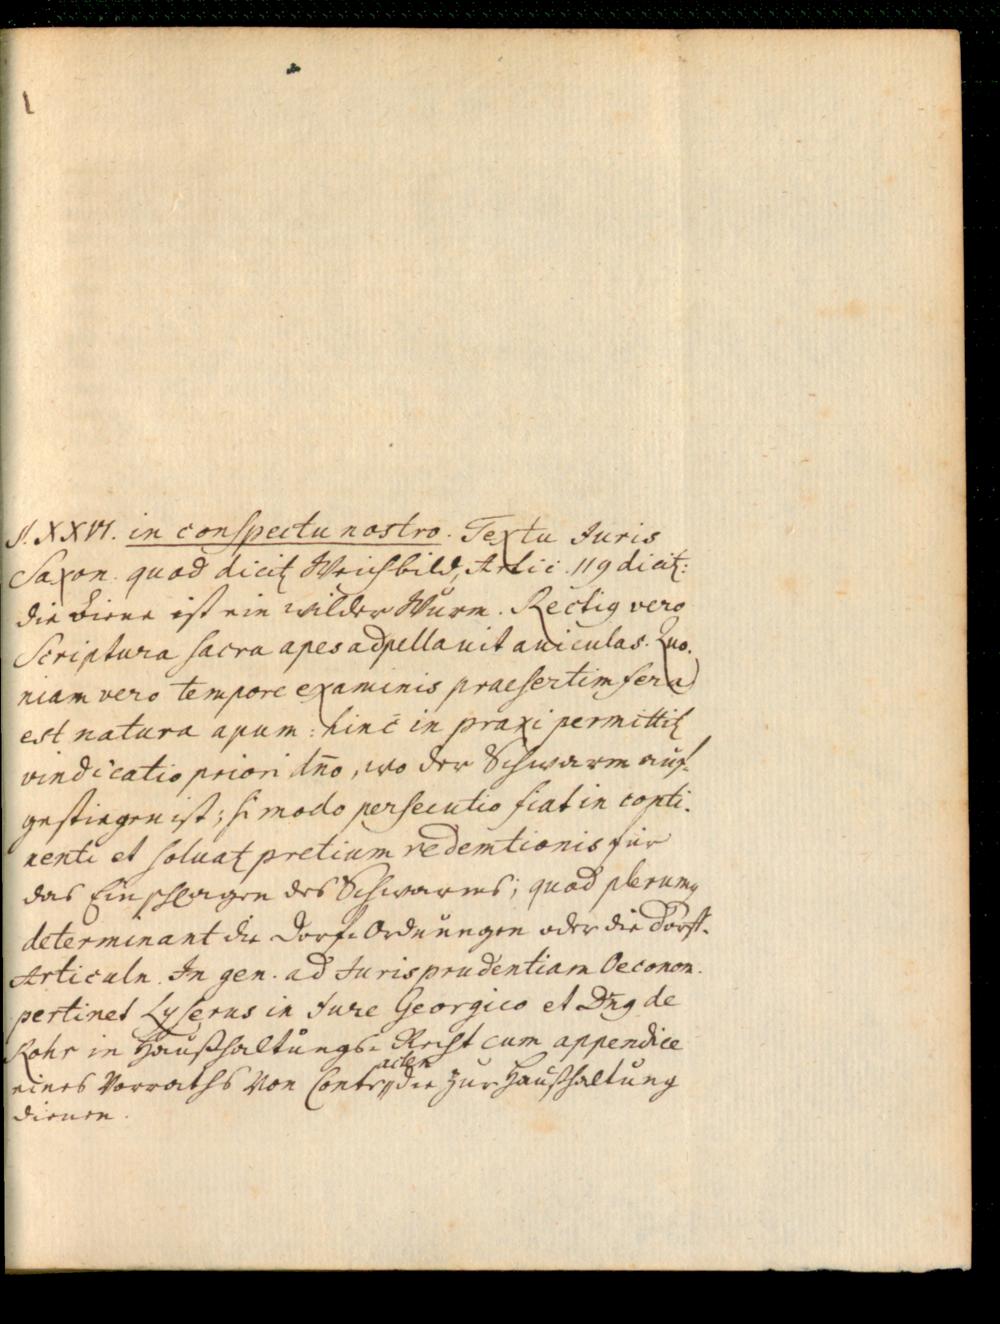 §. XXVI. in conspectu nostro. Textu Juris
Saxon. quod dicit Weichbild, Artic. 119 dicit:
die Biene ist ein wilder Wurm. Rectig vero
Scriptura sacra apes adpellavit aviculas. Quo-
niam vero tempore examinis praesertim fera
est natura apum: hinc in praxi permittit
vindicatio priori dno, wo der Schwarm auf-
gestiegen ist; si modo persecutio fiat in conti-
nenti et solvat pretium redemtionis für
das Einschlagen des Schwarms; quod plerumq
determinant die Dorf-Ordnungen oder die Dorff-
Articuln. In gen. ad Jurisprudentiam Oeconom.
pertinet Lyserus in Jure Georgico et Dng de
Rohr in Haußhaltungs-Recht cum appendice
eines Vorraths von Contracten die zur Haußhaltung
dienen.